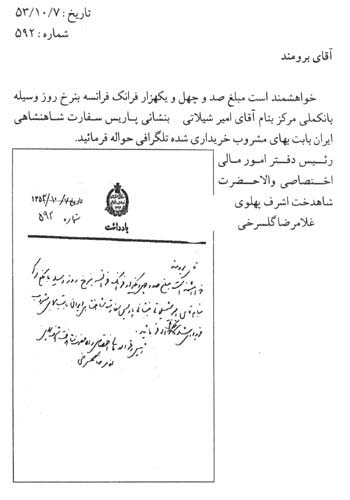 تاریخ : ۵۳/۱۰/۷
شماره : ۵۹۲
آقای برومند
خواهشمند است مبلغ صد و چهل و یکهزار فرانک فرانسه بنرخ روز وسیله
بانکملی مرکز بنام آقای امیر شیلاتی بنشانی پاریس سفارت شاهنشاهی
ایران بابت بهای مشروب خریداری شده تلگرافی حواله فرمائید.
رئیس دفتر امور مالی
اختصاصی والاحضرت
شاهدخت اشرف پهلوی
غلامرضا گلسرخی
تاریخ ۱۳۵۳/۱۰/۷
شماره ۵۹۲
یادداشت
آقای برومند
خواهشمند است مبلغ صد و چهل و یکهزار فرانک فرانسه بنرخ روز وسیله بانکملی مرکز
بنام آقای امیر شیلاتی بنشانی پاریس سفارت شاهنشاهی ایران بابت بهای مشروب
خریداری شده تلگرافی حواله فرمائید.
رئیس دفتر امور مالی اختصاصی والاحضرت شاهدخت اشرف پهلوی
غلامرضا گلسرخی